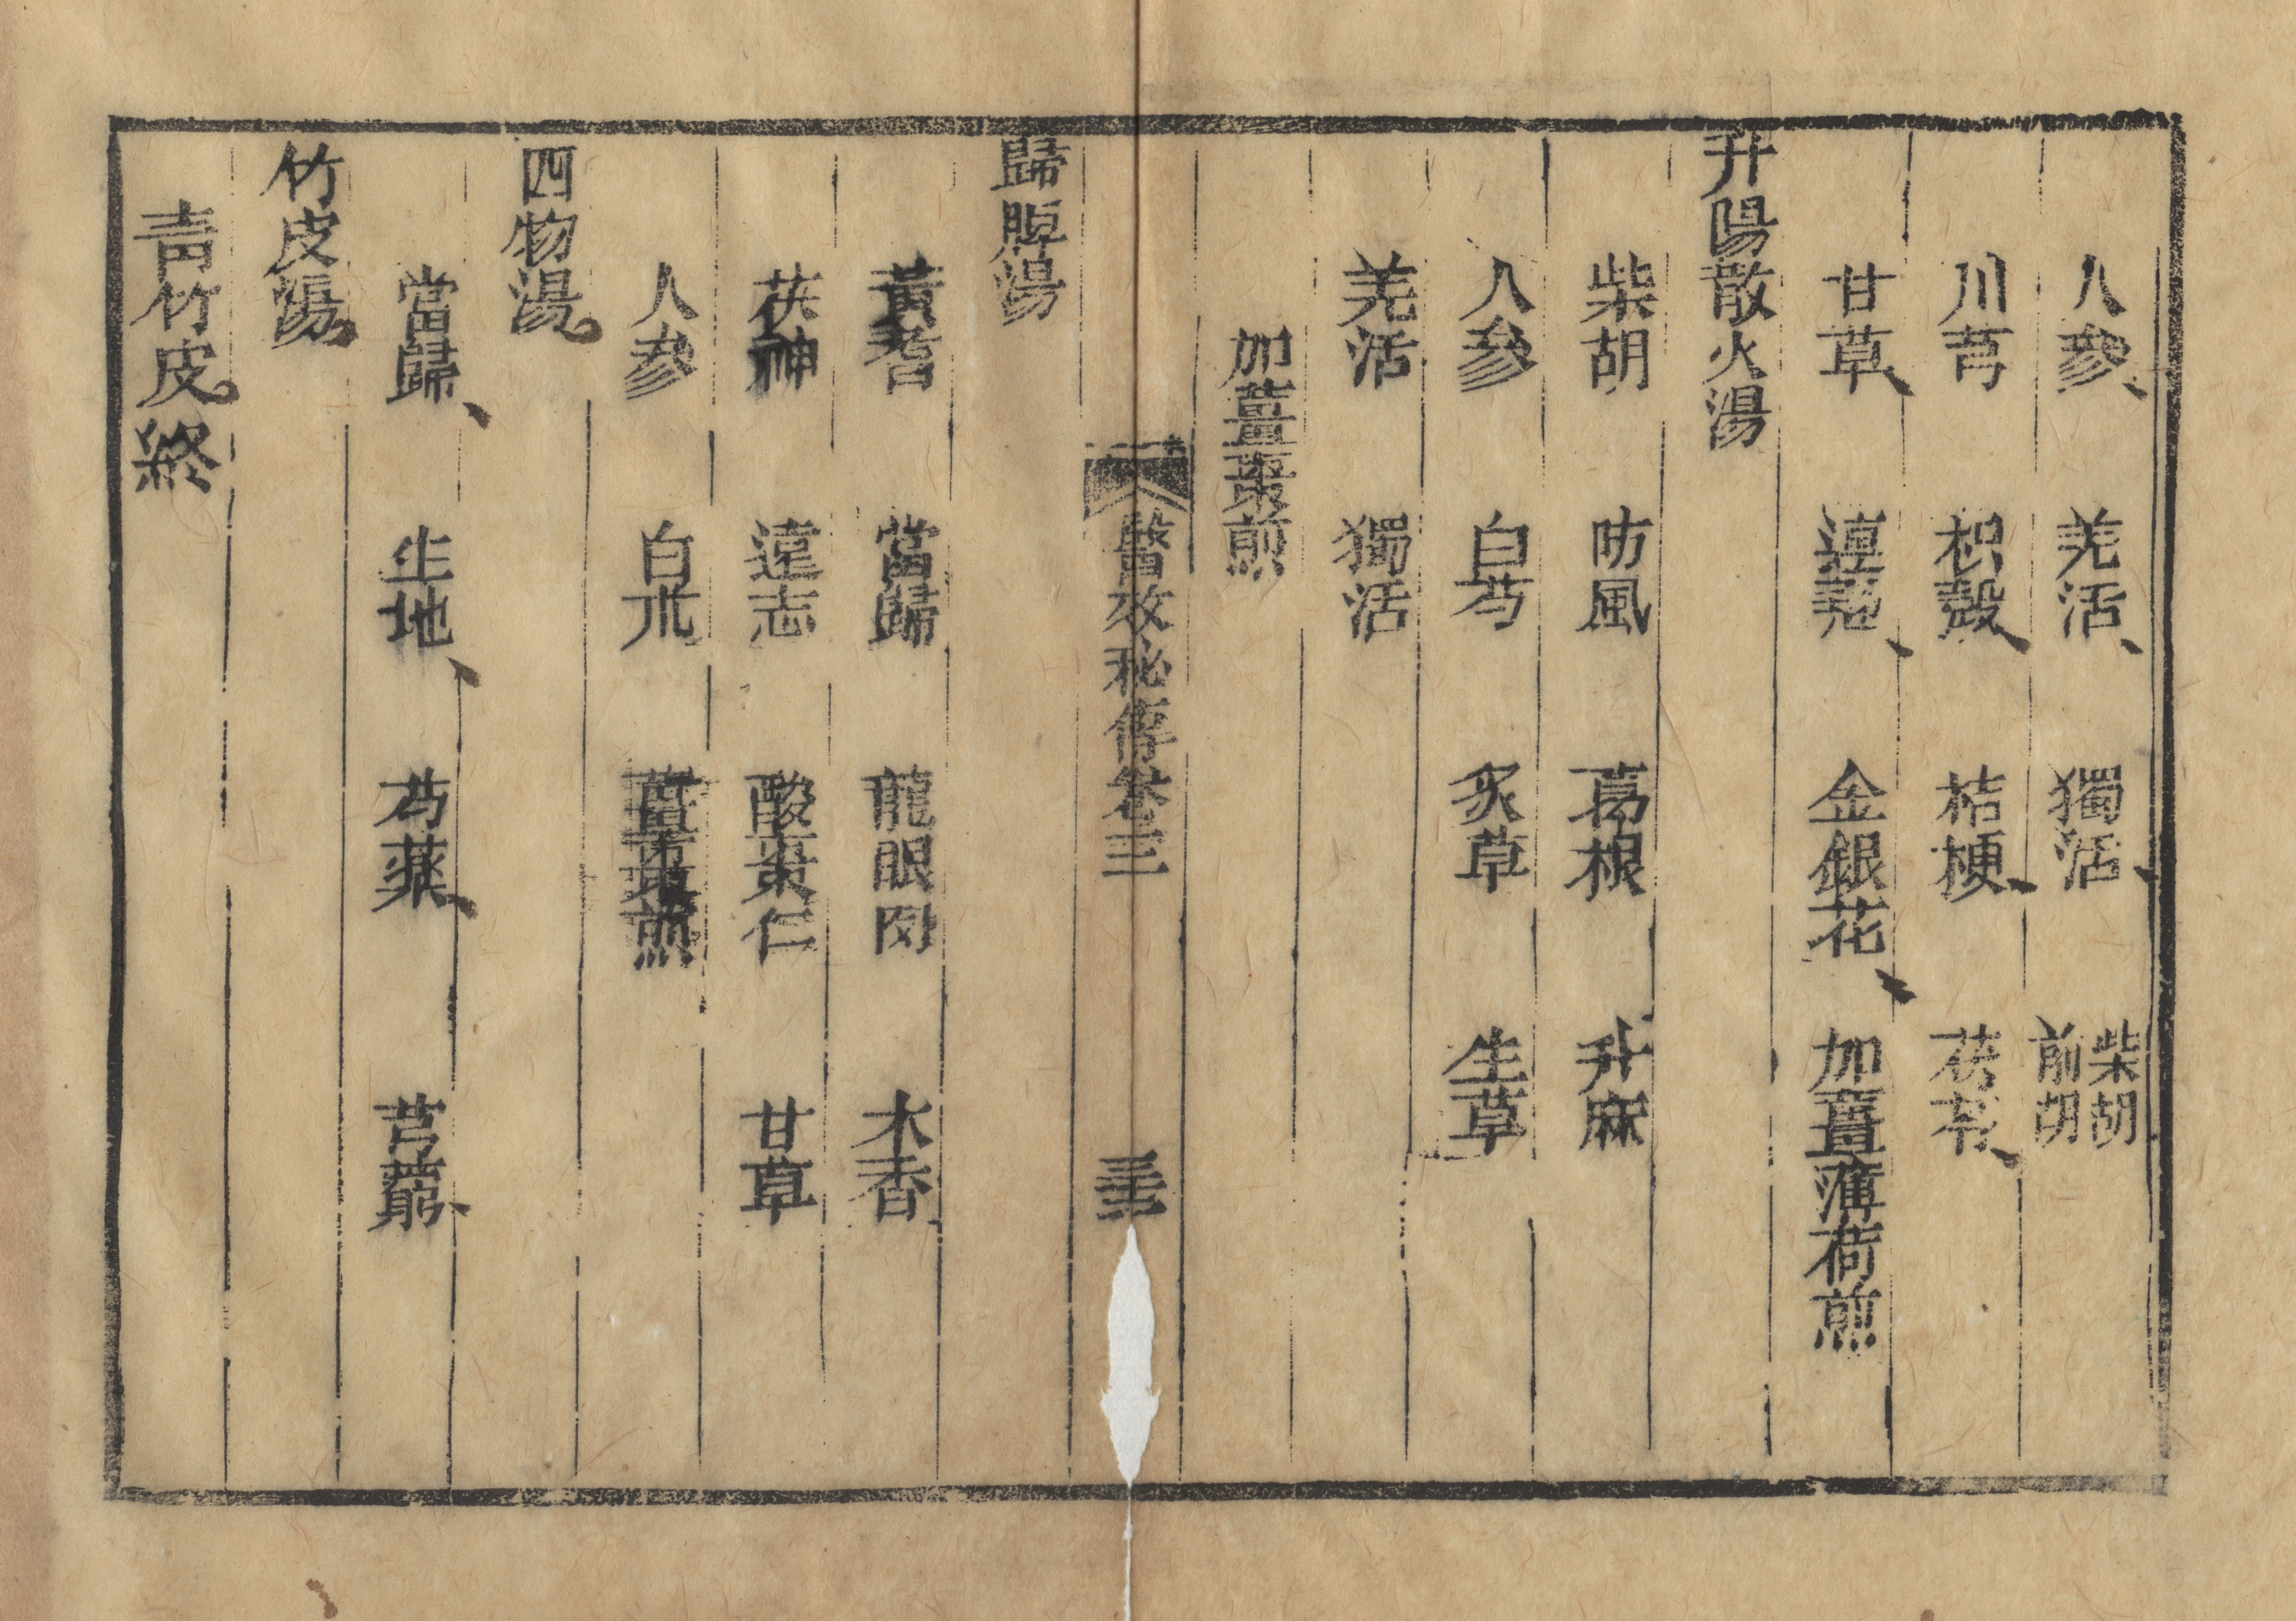 人參、 羌活、 獨活、 柴胡 前胡
川芎 枳殼、 桔梗、 茯苓、
甘草、 連翹、 金銀花、 加薑薄荷煎
升陽散火湯
柴胡 防風 葛根 升麻
人參 白芍 炙草 生草
羌活 獨活
加薑棗煎
醫效秘傳卷三
歸脾湯
黃耆 當歸 龍眼肉 木香
茯神 遠志 酸棗仁 甘草
人參 白朮 薑棗煎
四物湯。
當歸、 生地、 芍藥、 芎藭、
竹皮湯。
青竹皮。終